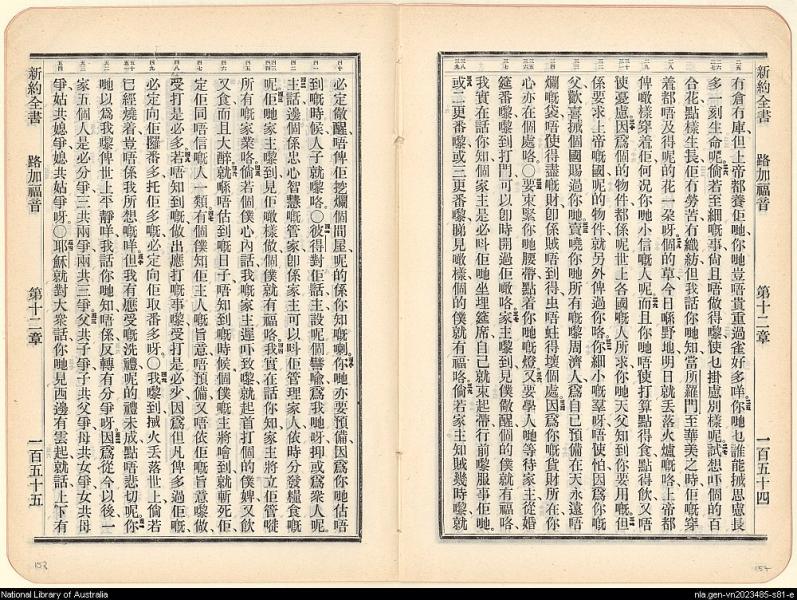 新約全書 路加福音 第十二章 一百五十四
有倉有庫但上帝都養佢哋你哋豈唔貴重過雀好多咩你哋乜誰能搣思慮長
多一刻生命呢倘若至細嘅事尙且唔做得嚟使乜掛慮別樣呢試想吓個的百
合花點樣生長佢冇勞苦冇織紡但我話你哋知當所羅門至華美之時佢嘅穿
着都唔及得呢的花一朶呀個的草今日喺野地明日就丟落火爐嘅咯上帝都
俾噉樣穿着佢何况你哋小信嘅人呢而且你哋唔使打算點得食點得飲又唔
使憂慮因爲個的物件都係呢世上各國嘅人所求你哋天父知到你要用嘅但
係要求上帝嘅國呢的物件就另外俾過你咯你細小嘅羣呀唔使怕因爲你嘅
父歡喜搣個國賜過你哋賣曉你哋所有嘅嚟周濟人爲自己預備在天永遠唔
爛嘅袋唔使得盡嘅財卽係賊唔到得虫唔蛀得壞個處因爲你嘅貨財所在你
心亦在個處咯○要束緊你哋腰帶點着你哋嘅燈又要學人哋等待家主從婚
筵番嚟嚟到打門可以卽時開過佢嘅咯家主嚟到見僕儆醒個的僕就有福咯
我實在話你知個家主是必呌佢哋坐埋筵席自己就束起帶行前嚟服事佢哋
或二更番嚟或三更番嚟睇見噉樣個的僕就有福咯倘若家主知賊幾時嚟就
必定儆醒唔俾佢挖爛個間屋呢的係你知嘅喇你哋亦要預備因爲你哋估唔
到嘅時候人子就嚟咯○彼得對佢話主設呢個譬喻爲我哋呀抑或爲衆人呢
主話邊個係忠心智慧嘅管家卽係家主可以呌佢管理家人依時分發糧食嘅
呢佢哋家主嚟到見佢噉樣做個僕就有福咯我實在話你知家主將立佢管嗮
所有嘅家業咯倘若個僕心內話我嘅家主遲吓致嚟就起首打個的僕婢又飲
又食而且大醉就喺唔估到嘅日子唔知到嘅時候個僕嘅主將嚟到就斬死佢
定佢同唔信嘅人一類有個僕知佢主人嘅旨意唔預備又唔依佢嘅旨意嚟做
受打是必多若唔知到嘅做出應打嘅事嚟受打是必少因爲但凡俾多過佢嘅
必定向佢攞番多托佢多嘅必定向佢取番多呀○我嚟到搣火丟落世上倘若
已經燒着豈唔係我所想嘅咩但我有應受嘅洗禮呢的禮未成點唔悲切呢你
哋以爲我嚟俾世上平靜咩我話你哋知唔係反轉有分爭呀因爲從今以後一
家五個人是必分爭三共兩爭兩共三爭父共子爭子共父爭母共女爭女共母
爭姑共媳爭媳共姑爭呀○耶穌就對大衆話你哋見西邊有雲起就話上下有
新約全書 路加福音 第十二章 一百五十五
National Library of Australia
nla.gen-vn2023485-s81-e